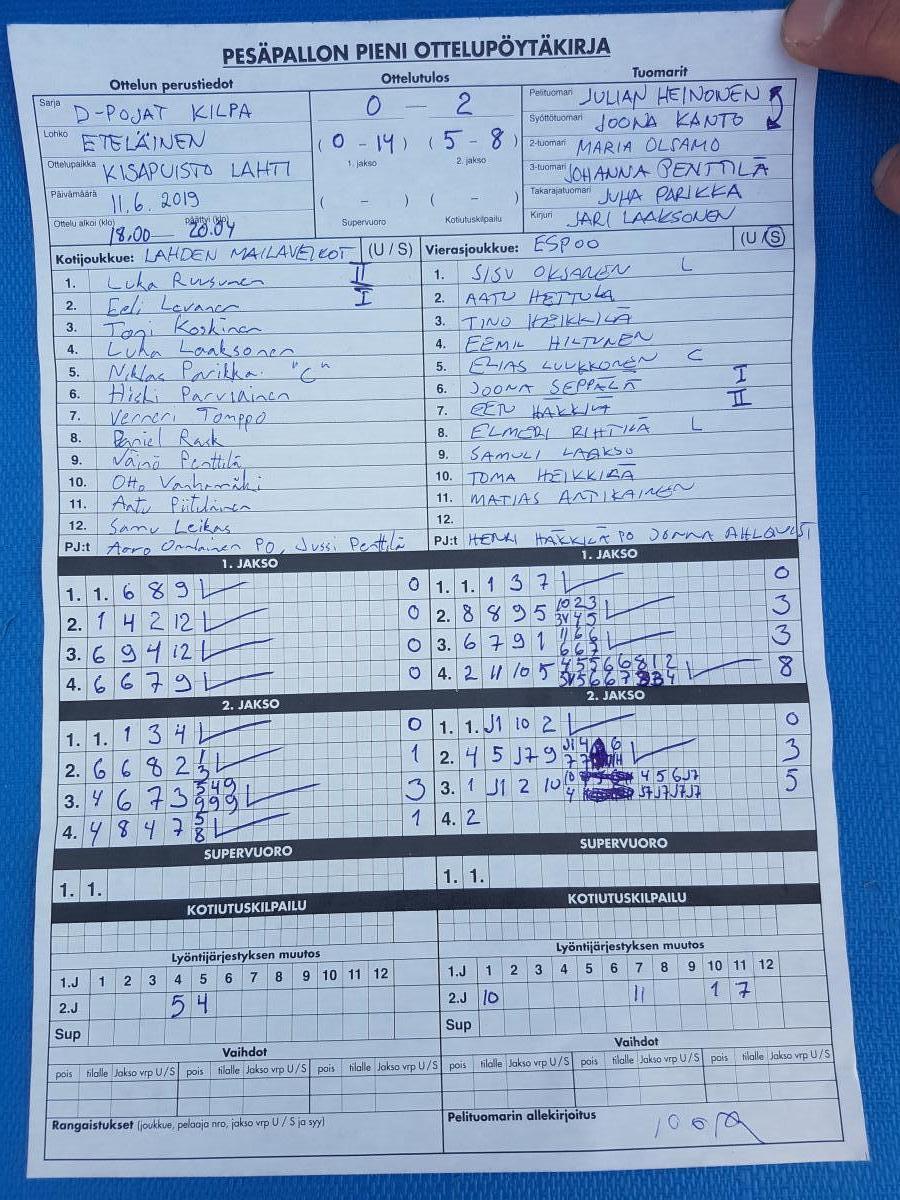 PESÄPALLON PIENI OTTELUPÖYTÄKIRJA
Ottelun perustiedot
Sarja D-POJAT KILPA
Lohko ETELÄINEN
Ottelupaikka KISAPUISTO LAHTI
Päivämäärä 11.6.2019
Ottelu alkoi (klo) päättyi (klo)
18.00 — 20.04
Ottelutulos
0 — 2
(0 - 14) (5 - 8)
1. jakso 2. jakso
( - ) ( - )
Supervuoro Kotiutuskilpailu
Tuomarit
Pelituomari JULIAN HEINONEN
Syöttötuomari JOONA KANTO
2-tuomari MARIA OLSAMO
3-tuomari JOHANNA PENTTILÄ
Takarajatuomari JUHA PARIKKA
Kirjuri JARI LAAKSONEN
Kotijoukkue: LAHDEN MAILAVEIKOT (U / S)
1. Luka Ruusunen II
2. Eeli Levanen I
3. Toni Koskinen
4. Luka Laaksonen
5. Niklas Parikka "C"
6. Hiski Parviainen
7. Verneri Tomppo
8. Daniel Rask
9. Väinö Penttilä
10. Otto Vanhamäki
11. Aatu Piitulainen
12. Samu Leikas
PJ:t Aaro PO, Jussi Penttilä
Vierasjoukkue: ESPOO (U / S)
1. SISU OKSANEN L
2. AATU HETTULA
3. TINO HEIKKILÄ
4. EEMIL HILTUNEN
5. ELIAS LUUKKONEN C
6. JOONA SEPPÄLÄ I
7. EETU HÄKKILÄ II
8. ELMERI RIHTILÄ L
9. SAMULI LAAKSO
10. TOMA HEIKKILÄ
11. MATIAS ANTIKAINEN
12.
PJ:t HENRI HÄKKILÄ PO JONNA AHLQVIST
1. JAKSO
1. 1. 6 8 9 0
2. 1 4 2 12 0
3. 6 9 4 12 0
4. 6 6 7 9 0
2. JAKSO
1. 1. 1 3 4 0
2. 6 6 8 2 1 3 1
3. 4 6 7 3 5 4 9 9 9 9 3
4. 4 8 4 7 5 8 1
SUPERVUORO
1. 1.
KOTIUTUSKILPAILU
Lyöntijärjestyksen muutos
1.J 1 2 3 4 5 6 7 8 9 10 11 12
2.J 5 4
Sup
Vaihdot
pois tilalle Jakso vrp U / S pois tilalle Jakso vrp U / S pois tilalle Jakso vrp U / S
Rangaistukset (joukkue, pelaaja nro, jakso vrp U / S ja syy)
1. JAKSO
1. 1. 1 3 7 0
2. 8 8 9 5 10 2 3 3V 4 5 3
3. 6 7 9 1 11 6 6 6 6 7 3
4. 2 11 10 5 4 5 5 6 6 8 1 2 8
2. JAKSO
1. 1. J1 10 2 0
2. 4 5 J7 9 J1 4 6 3
3. 1 J1 2 10 10 4 5 6 J7 4 J7 J7 J7 J7 5
4. 2
SUPERVUORO
1. 1.
KOTIUTUSKILPAILU
Lyöntijärjestyksen muutos
1.J 1 2 3 4 5 6 7 8 9 10 11 12
2.J 10 11 1 7
Sup
Vaihdot
pois tilalle Jakso vrp U / S pois tilalle Jakso vrp U / S pois tilalle Jakso vrp U / S
Pelituomarin allekirjoitus